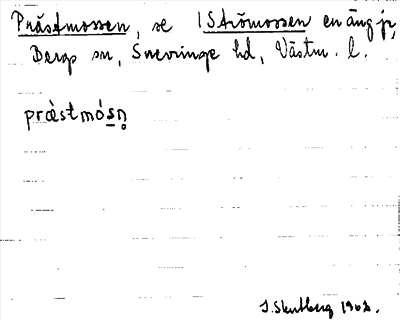 Prästmossen, se 1 Strömossen en äng jr,
Bergs sn, Snevringe hd, Västm. l.
præ̀stmósn̥
J. Skutberg 1962.